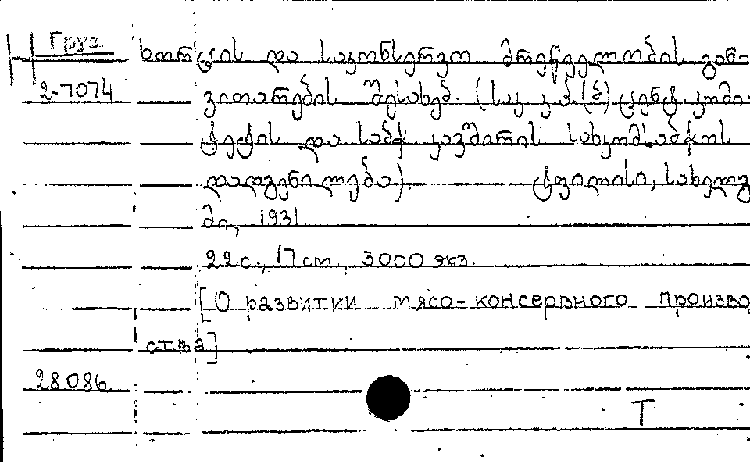 Груз.
ხორცის და საკონსერვო მრეწველობის გან-
2-7074 ვითარების შესახებ. (საკ. კ. პ. (ბ) ცენტ. კომი-
ტეტის და საბჭ. კავშირის სახკომსაბჭოს
დადგენილება). ტფილისი, სახელგ
მი, 1931
22 с., 17 см., 3000 экз.
[О развитии мясо-консервного произво
ства]
28086.
Т